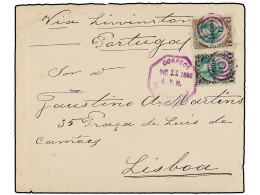 Via Livinston
Portugal
CORREOS
DIC 11 1893
4 P.M.
Son Dr
Faustino A. Martins
35 Praça de Luis de
Camões
Lisboa